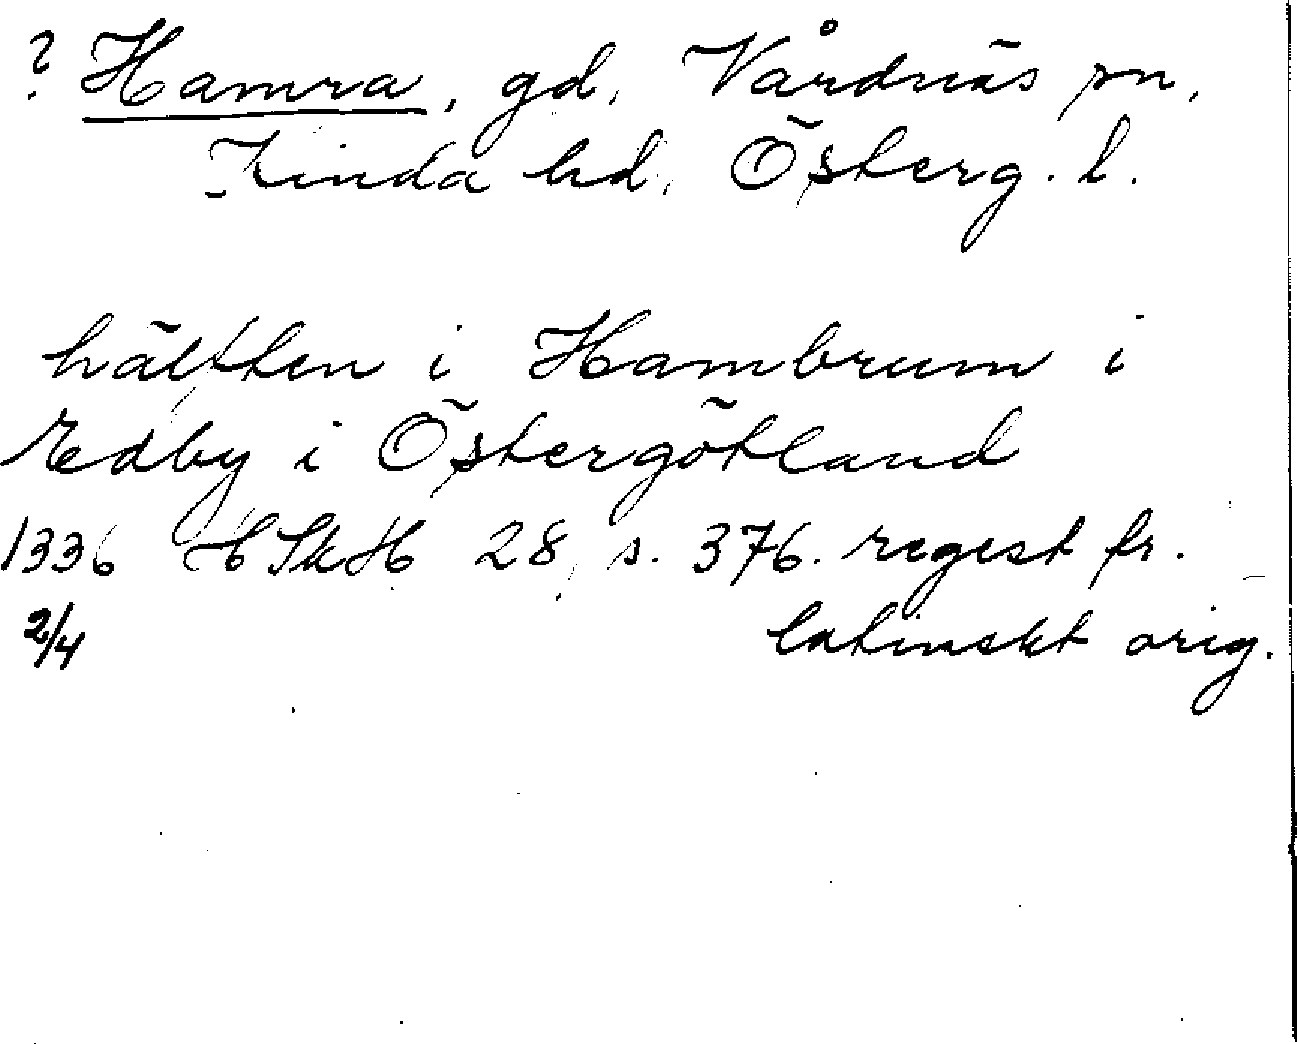 ? Hamra, gd, Vårdnäs sn,
Kinda hd, Österg. l.
hälften i Hambrum i
Edby i Östergötland
1336 HSkH 28, s. 376. regest fr.
2/4 latinskt orig.